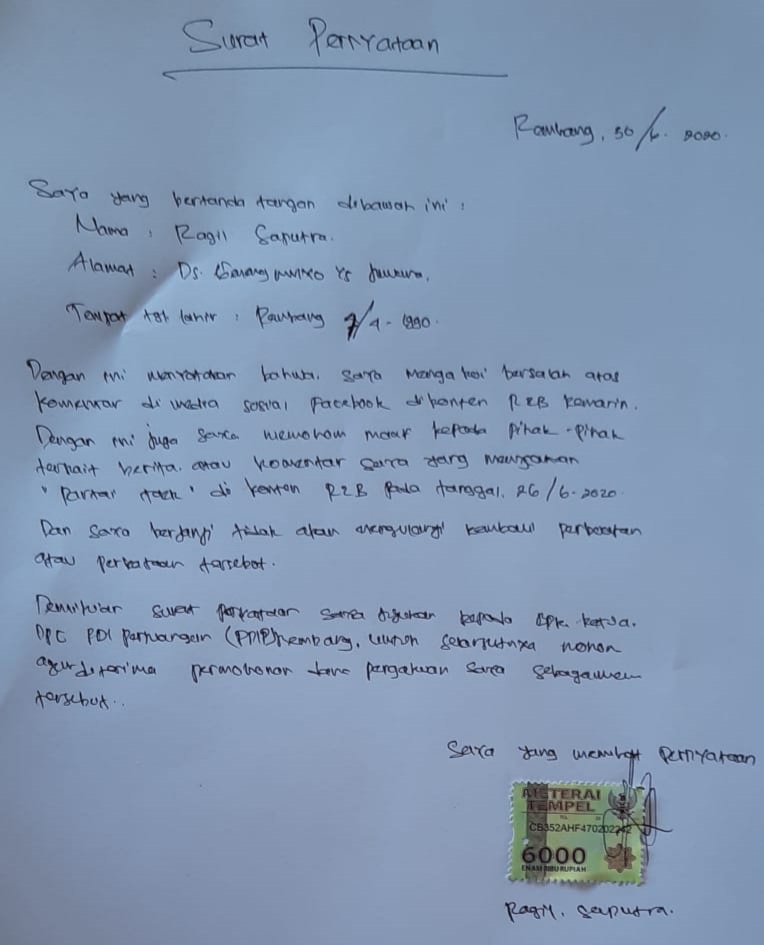 Surat Pernyataan
Rembang, 30/6. 2020.
Saya yang bertanda tangan dibawah ini :
Nama : Ragil Saputra.
Alamat : Ds.
Tempat tgl lahir : Rembang 7/4 - 1990.
Dengan ini menyatakan bahwa. saya mengakui bersalah atas
komentar di media sosial Facebook di konten R2B kemarin.
Dengan ini juga saya memohon maaf kepada pihak - pihak
terkait berita. atau komentar saya yang mengatakan
" Partai " di konten R2B pada tanggal, 26/6-2020.
Dan saya berjanji tidak akan mengulangi kembali perbuatan
atau perkataan tersebut.
Demikian surat pernyataan saya kepada Bpk. ketua.
DPC PDI perjuangan (PDIP) rembang, untuk selanjutnya mohon
agar diterima permohonan dan pengakuan saya sebagaimana
tersebut..
Saya yang membuat pernyataan
METERAI
TEMPEL
TGL 20
CB352AHF470202242
6000
ENAM RIBU RUPIAH
Ragil. Saputra.